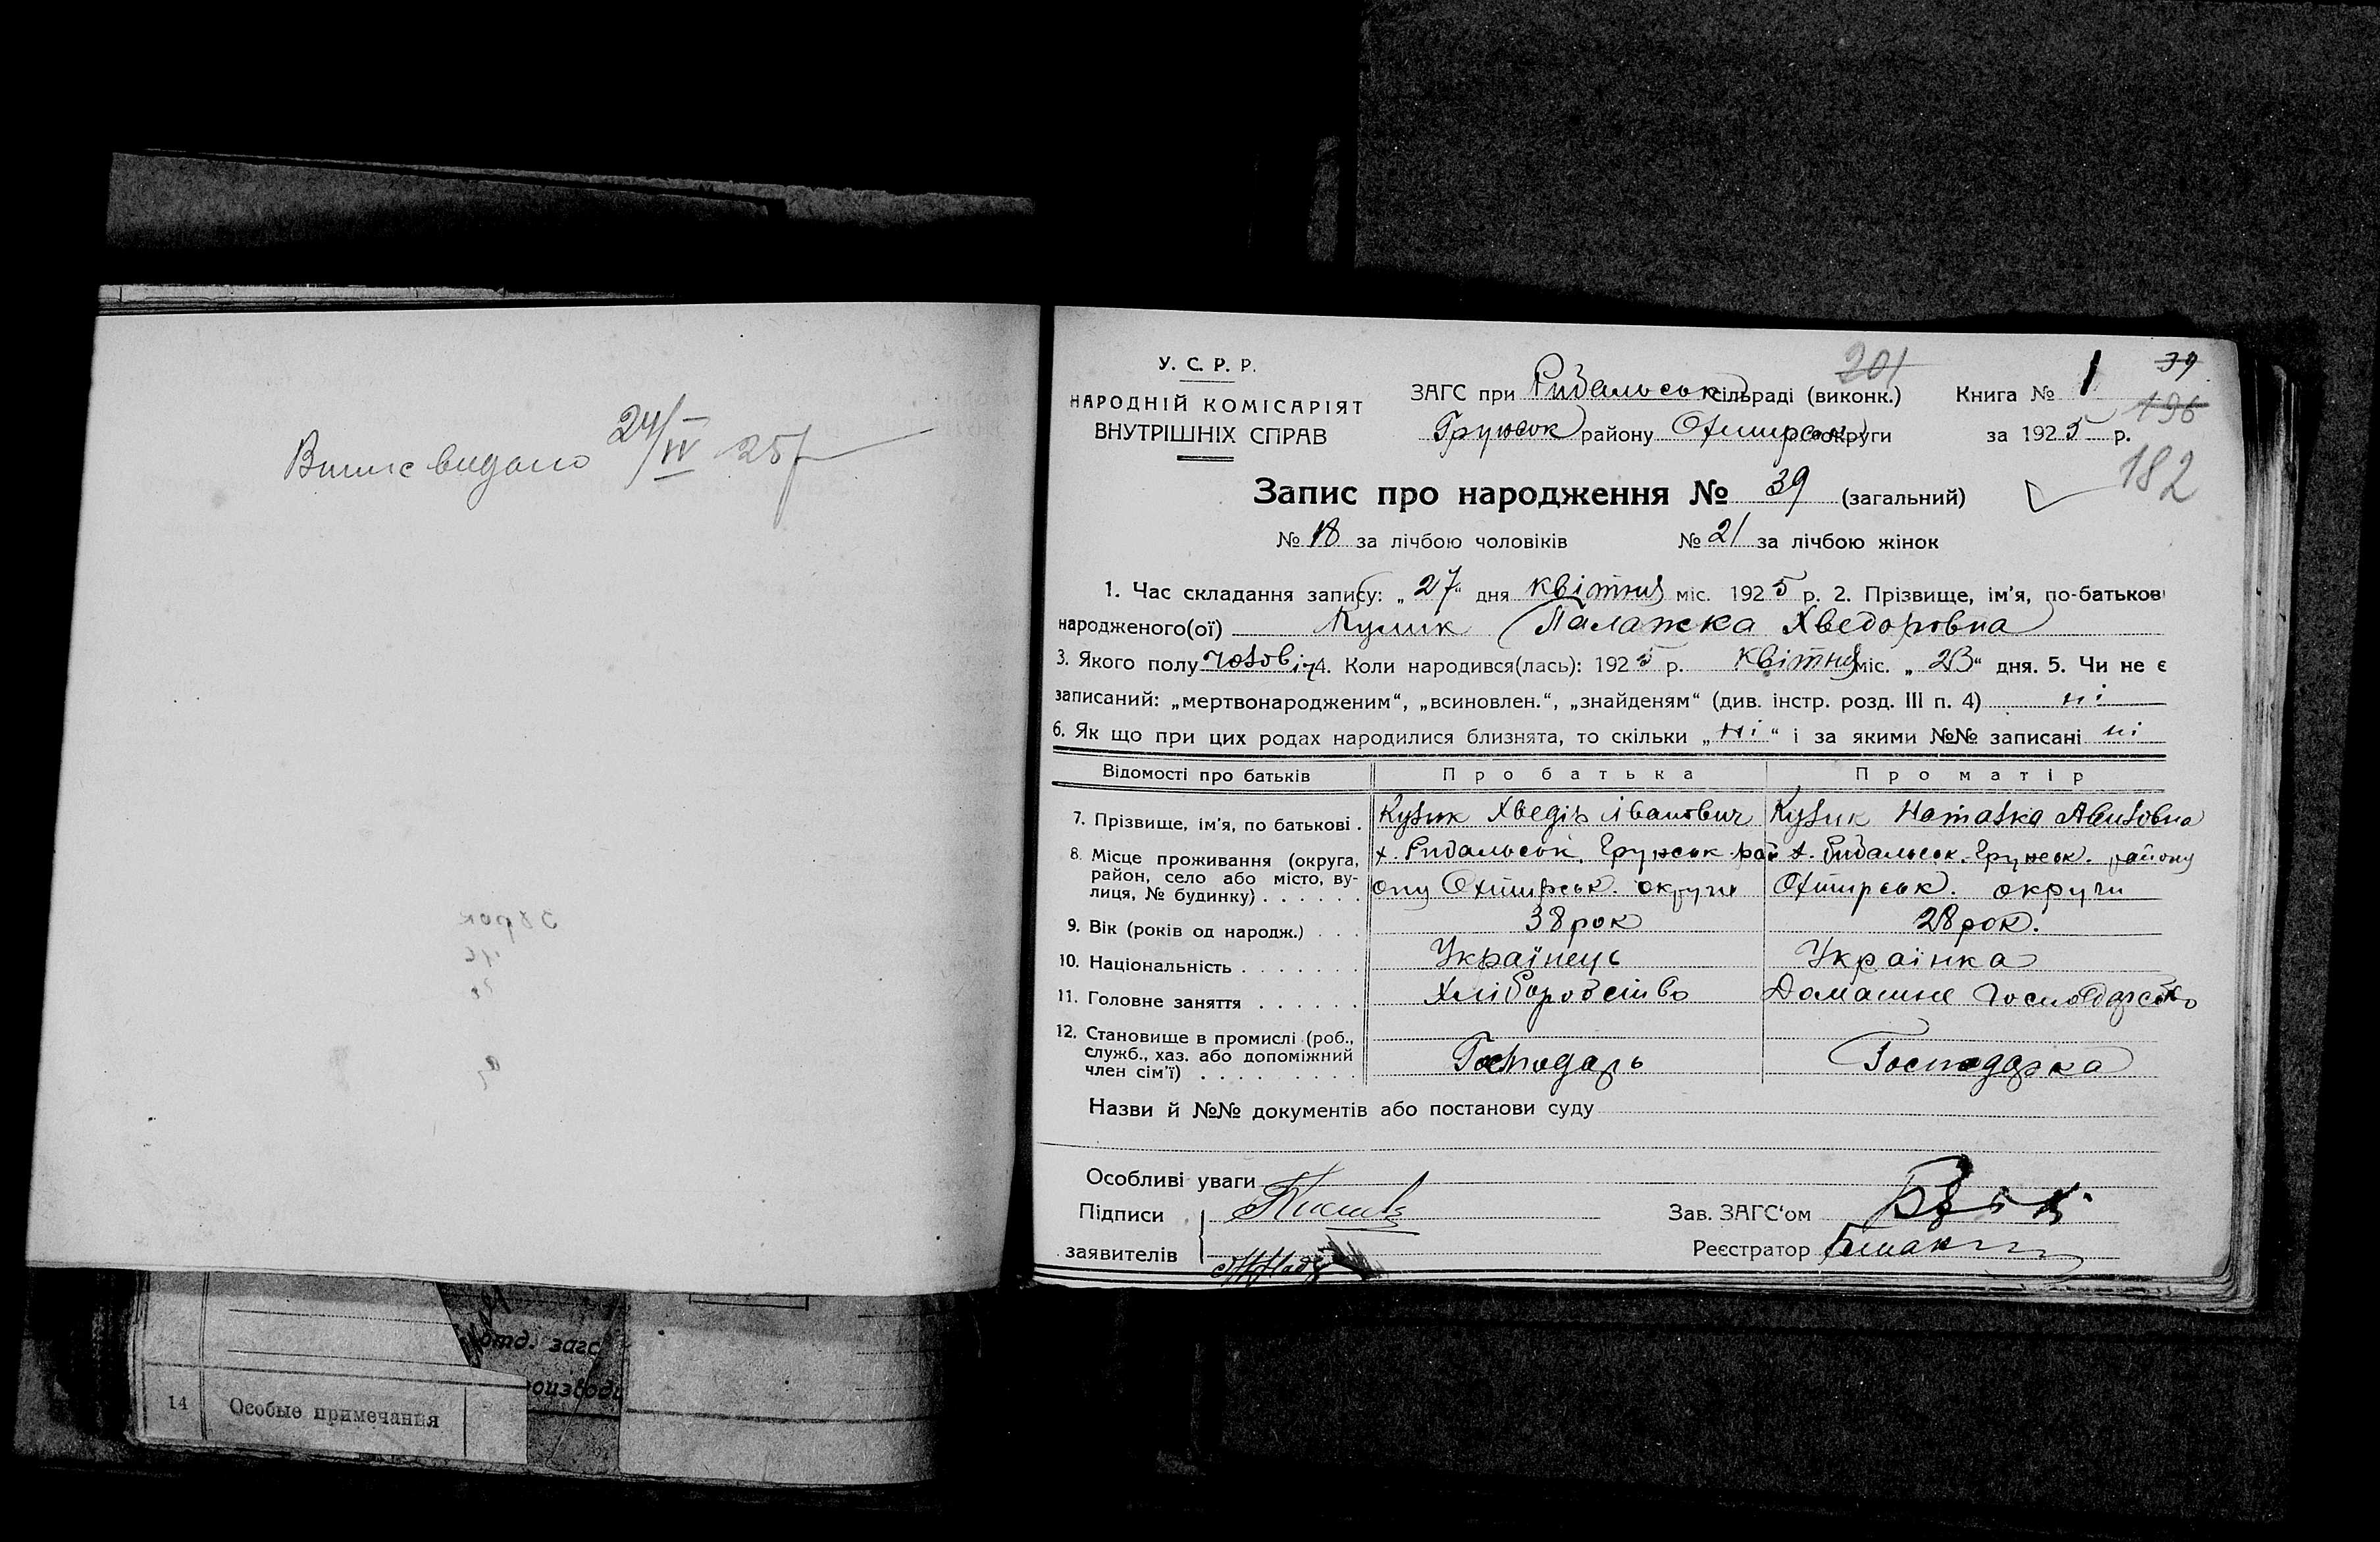 Випис видано 24/IV 25 р
У. С. Р. Р.
НАРОДНІЙ КОМІСАРІЯТ
ВНУТРІШНІХ СПРАВ
201
ЗАГС при Рибальськ сільраді (виконк.)
Грунськ району Охтирськ округи
Книга № 1
39
196
за 1925 р.
182
Запис про народження № 39 (загальний)
№ 18 за лічбою чоловіків № 21 за лічбою жінок
1. Час складання запису: „27“ дня квітня міс. 1925 р. 2. Прізвище, ім'я, по-батькові
народженого(ої) Кулик Палажка Хведоровна
3. Якого полу чоловіч 4. Коли народився(лась): 1925 р. квітня міс. „23“ дня. 5. Чи не є
записаний: „мертвонародженим“, „всиновлен.“, „знайденям“ (див. інстр. розд. III п. 4) ні
6. Як що при цих родах народилися близнята, то скільки „ні“ і за якими №№ записані ні
Відомості про батьків Про батька Про матір
7. Прізвище, ім'я, по батькові . Кулик Хведір Іванович Кулик Наталка
8. Місце проживання (округа, район, село або місто, вулиця, № будинку) . . . . . .
х. Рибальськ, Грунськ рай
ону Охтирськ. округи
х. Рибальськ. Грунськ. району
Охтирськ. округи
9. Вік (років од народж.) . . . 38 рок 28 рок.
10. Національність . . . . . . . Українець Українка
11. Головне заняття . . . . . . Хліборобство Домашнє господарство
12. Становище в промислі (роб., служб., хаз. або допоміжний член сім'ї) . . . . . . . . . Господарь Господарка
Назви й №№ документів або постанови суду
Особливі уваги
Підписи
заявителів
Зав. ЗАГС'ом
Реєстратор
отд. загс
14 Особые примечания